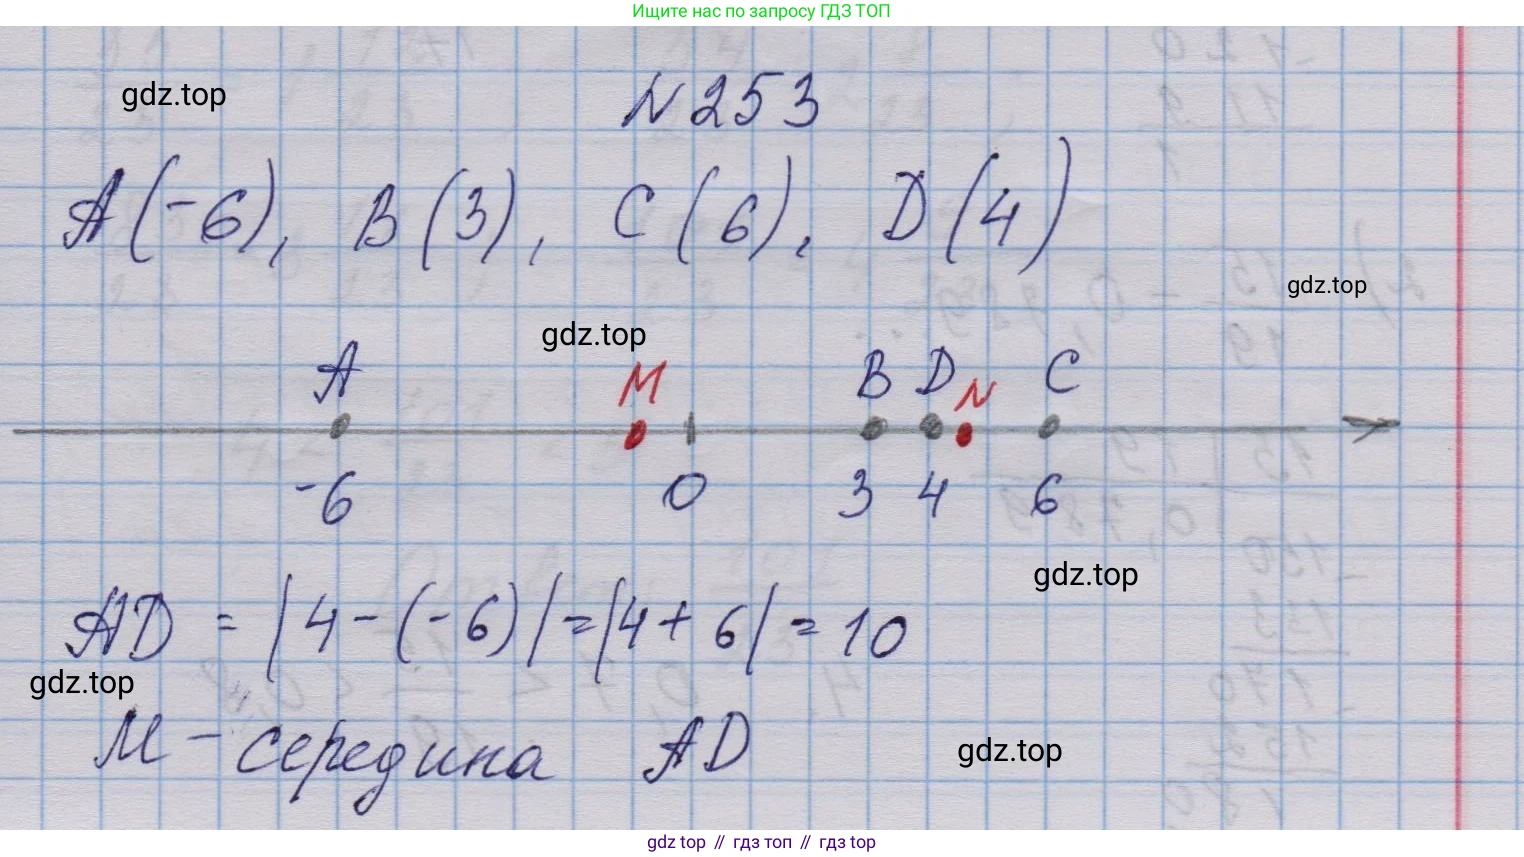 Ищите нас по запросу ГДЗ ТОП
gdz.top
N 253
A(-6), B(3), C(6), D(4)
gdz.top
gdz.top
A M B D N C
-6 0 3 4 6
gdz.top
AD = |4-(-6)|=|4+6|=10
gdz.top
M - середина AD
gdz.top
gdz top // гдз топ // гдз top